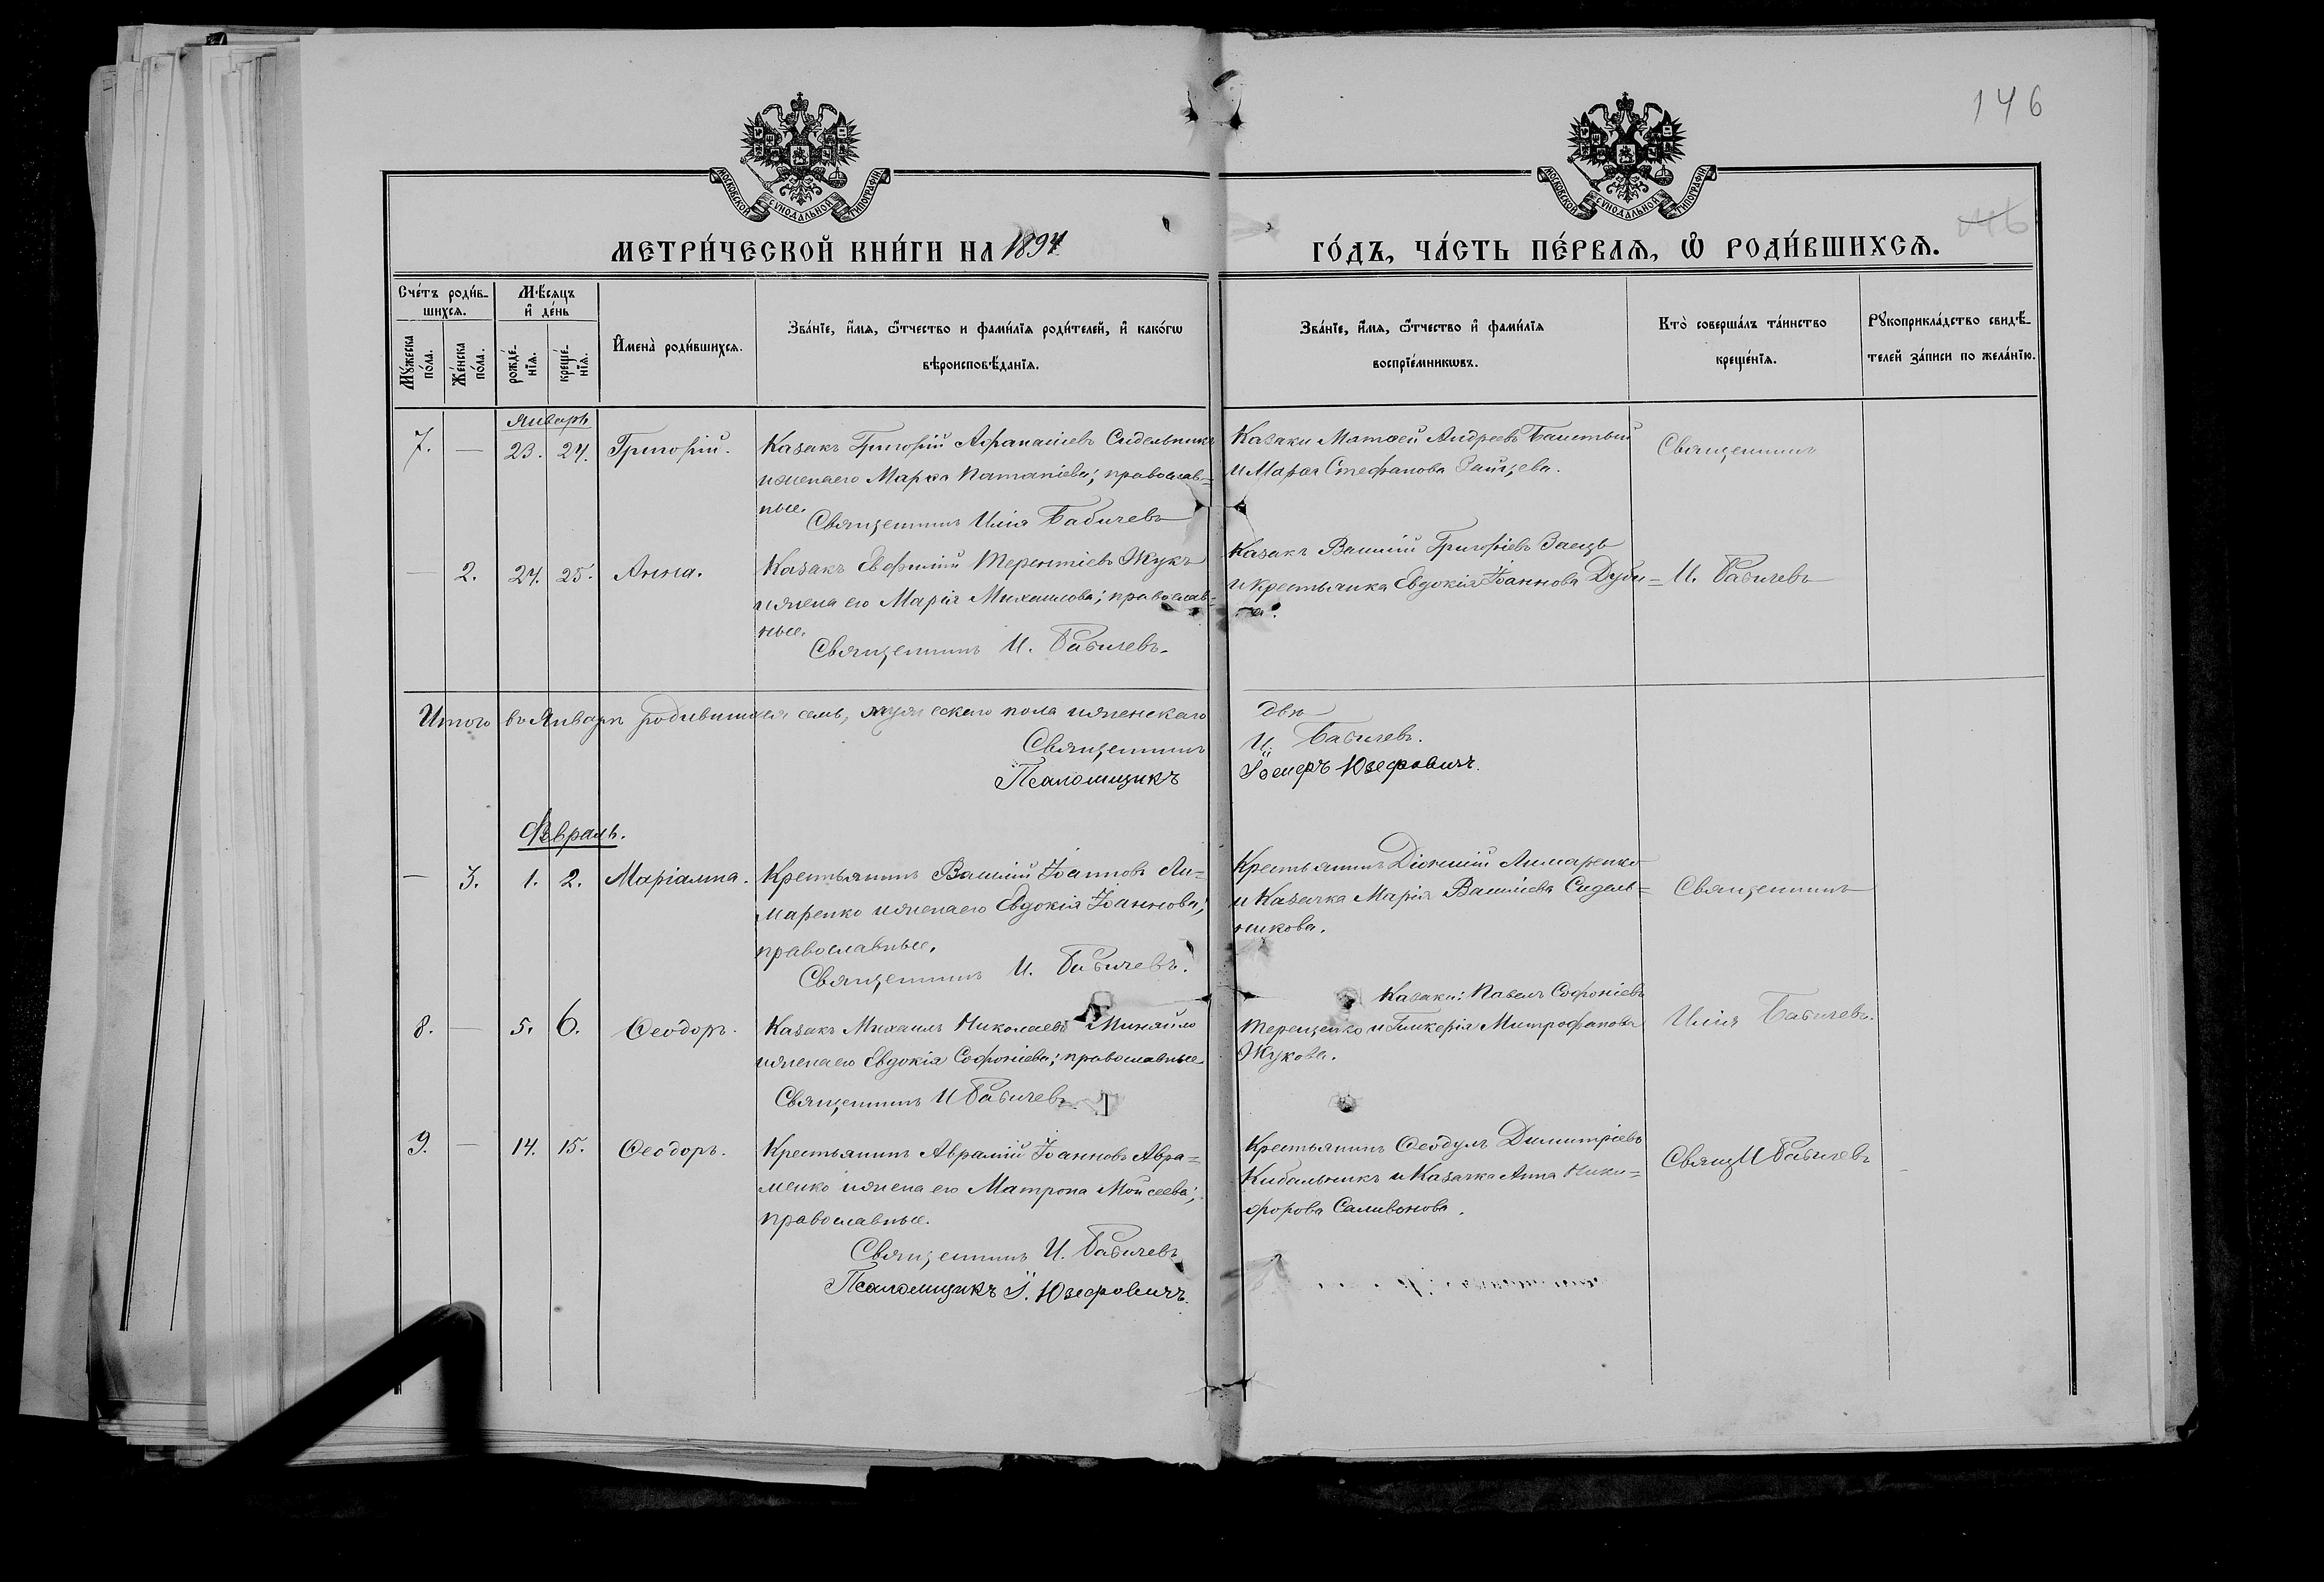 146
МОСКОВСКОЙ СѴНОДАЛЬНОЙ ТИПОГРАФІИ
МОСКОВСКОЙ СѴНОДАЛЬНОЙ ТИПОГРАФІИ
146
МЕТРИ́ЧЕСКОЙ КНИ́ГИ НА 1894
ГО́ДЪ, ЧА́СТЬ ПЕ́РВАѦ, Ѽ РОДИ́ВШИХСѦ.
Сче́тъ роди́в-
шихсѧ.
Мꙋ́жеска по́ла.
Же́нска по́ла.
Мѣ́сѧцъ
и҆ де́нь
рожде́-нїѧ.
креще́-нїѧ.
И҆мена̀ роди́вшихсѧ.
Зва́нїе, и҆́мѧ, ѻ҆́тчество и фами́лїѧ роди́телей, и҆ како́гѡ
вѣроисповѣ́данїѧ.
Зва́нїе, и҆́мѧ, ѻ҆́тчество и҆ фами́лїѧ
воспрїе́мникѡвъ.
Кто̀ соверша́лъ та́инство
креще́нїѧ.
Рꙋкоприкла́дство свидѣ́-
телей за́писи по жела́нїю.
Январь
7. — 23. 24. Григорій. Казакъ Григорій Афанасіевъ Сидельникъ
и жена его Марѳа Потапіева; православ=
ные.
Священникъ Илія Бабичевъ
Казаки Матѳей Андреевъ
и Марѳа Стефанова Зайцева.
Священникъ
— 2. 24. 25. Анна. Казакъ Евфимій Терентіевъ Жукъ
и жена его Марія Михаилова; православ=
ные.
Священникъ И. Бабичевъ.
Казакъ Василій Григоріевъ Заецъ
и крестьянка Евдокія Іоаннова Дуби=
на.
И. Бабичевъ
Итого въ Январѣ родившихся семь, мужескаго пола и женскаго две
Священникъ И. Бабичевъ.
Псаломщикъ Іосифъ Юзефовичъ.
Февраль.
— 3. 1. 2. Маріамна. Крестьянинъ Василій Іоанновъ Ли=
маренко и жена его Евдокія Іоаннова;
православные.
Священникъ И. Бабичевъ.
Крестьянинъ Діонисій Лимаренко
и Казачка Марія Василіева Сидель=
никова.
Священникъ
8. — 5. 6. Ѳеодоръ. Казакъ Михаилъ Николаевъ Михайло
и жена его Евдокія Софоніева; православные
Священникъ И Бабичевъ.
Казаки: Павелъ Софоніевъ
Терещенко и Гликерія Митрофанова
Жукова.
Илія Бабичевъ.
9. — 14. 15. Ѳеодоръ. Крестьянинъ Аврамій Іоанновъ Авра=
менко и жена его Матрона Моисеева;
православные.
Священникъ И. Бабичевъ
Псаломщикъ І. Юзефовичъ.
Крестьянинъ Ѳеодулъ Димитріевъ
Кибальникъ и Казачка Анна Ники=
форова Саливонова.
Свящ И Бабичевъ